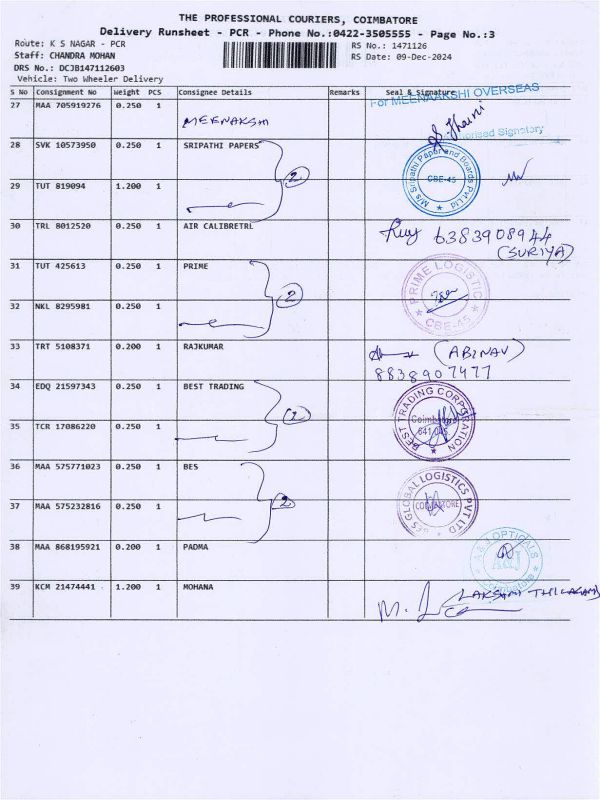 THE PROFESSIONAL COURIERS, COIMBATORE
Delivery Runsheet - PCR - Phone No.:0422-3505555 - Page No.:3
Route: K S NAGAR - PCR
RS No.: 1471126
Staff: CHANDRA MOHAN
RS Date: 09-Dec-2024
DRS No.: DCJB147112603
Vehicle: Two Wheeler Delivery
S No Consignment No Weight PCS Consignee Details Remarks Seal & Signature
For MEENAAKSHI OVERSEAS
27 MAA 705919276 0.250 1
MEENAKSHI
Authorised Signatory
28 SVK 10573950 0.250 1 SRIPATHI PAPERS
2
M/s Sripathi Paper and Boards Pvt Ltd
CBE-45
29 TUT 819094 1.200 1
30 TRL 8012520 0.250 1 AIR CALIBRETRL
6383908944
(SURIYA)
31 TUT 425613 0.250 1 PRIME
2
PRIME LOGISTIC
CBE-45
32 NKL 8295981 0.250 1
33 TRT 5108371 0.200 1 RAJKUMAR
(ABINAV)
8838907477
34 EDQ 21597343 0.250 1 BEST TRADING
BEST TRADING CORPORATION
Coimbatore
641 045
35 TCR 17086220 0.250 1
36 MAA 575771023 0.250 1 BES
2
BES GLOBAL LOGISTICS PVT LTD
COIMBATORE
37 MAA 575232816 0.250 1
38 MAA 868195921 0.200 1 PADMA
A & J OPTICALS
A&J
Coimbatore
39 KCM 21474441 1.200 1 MOHANA
LAKSHMI THILAGAM